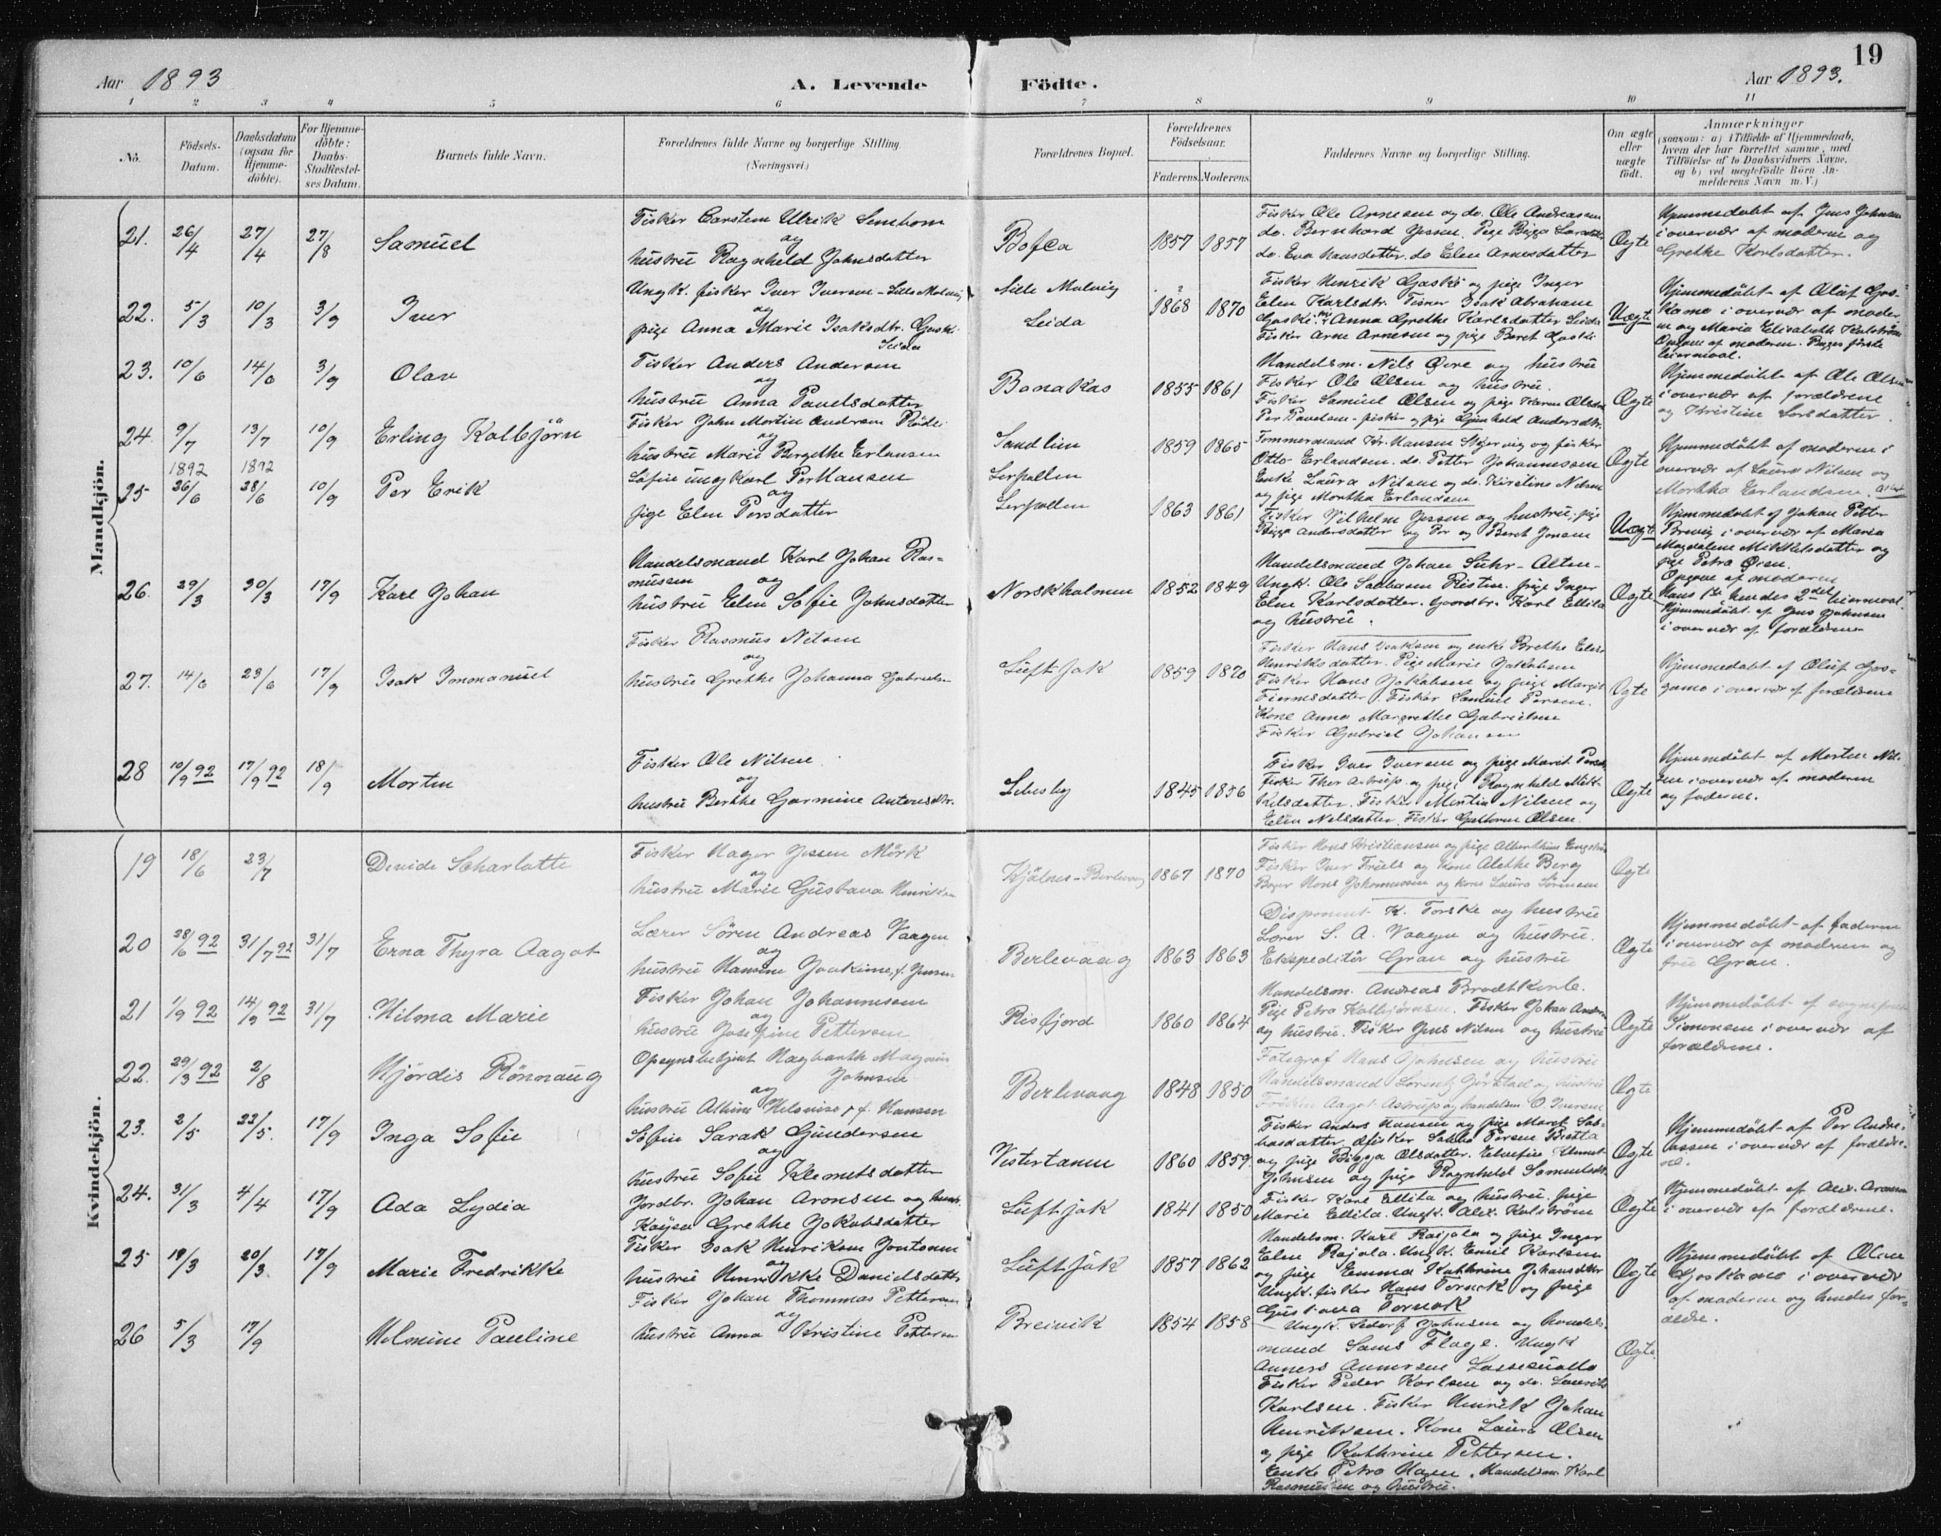 19
Aar 1893
A. Levende
Födte.
Aar 1893.
1 2 3 4 5 6 7 8 9 10 11
No.
Födsels-
Datum.
Daabsdatum
(ogsaa for
Hjemme-
döbte).
For Hjemme-
döbte:
Daabs-
Stadfæstel-
ses Datum.
Barnets fulde Navn.
Forældrenes fulde Navne og borgerlige Stilling.
(Næringsvei.)
Forældrenes Bopæl.
Forældrenes
Födselsaar.
Faderens. Moderens.
Faddernes Navne og borgerlige Stilling.
Om ægte
eller
uægte
födt.
Anmærkninger
(saasom: a) i Tilfælde af Hjemmedaab,
hvem der har forrettet samme, med
Tilföielse af to Daabsvidners Navne,
og b) ved uægtefödte Börn An-
melderens Navn m. V.)
Mandkjön.
21. 26/4 27/4 27/8 Samuel
Fisker Carsten Ulrik
og
hustru Ragnhild Johnsdatter
1857 1857
Fisker Ole Arnesen og do. Ole Andreassen
do. Bernhard Jessen. Pige
do. Eva Hansdatter. do Elen Arnesdatter
Ægte
Hjemmedøbt af Jens Johnsen
i overvær af moderen og
Grethe Karlsdatter.
22. 5/3 10/3 3/9 Iver
Ungk. fisker Iver Iversen - Lille Molvig
og
pige Anna Marie Isaksdtr. Gaski
Seida
Lille Molvig
Seida
1868 1870
Fisker Henrik Gaski og pige Inger
Elen Karlsdtr. Fisker Isak Abraham
Gaski. Anna Grethe Karlsdatter Seida
Fisker Arne Arnesen og pige Beret Gaski
Uægte
Hjemmedøbt af Oluf Gos-
kamo i overvær af moder
n og Maria Elisabeth
Opgave af moderen. Begges første
leiermaal.
23. 10/6 14/6 3/9 Olav
Fisker Anders Andersen
og
hustru Anna Paulsdatter
Bonakas
1855 1861
Handelsm. Nils Øvre og hustru
Fisker Ole Olsen og hustru.
Fisker Samuel Olsen og pige Karen
Per Paulsen - fisker og pige Andersdtr.
Ægte
Hjemmedøbt af Ole Olsen
i overvær af forældrene
og Kristine Larsdatter.
24 9/7 13/7 10/9 Erling Kolbjørn
Fisker John Mortin Andersen Røde
og
hustru Marie Bergethe Erlansen
Sandlien
1859 1865
Tømmermand Hansen og fisker
Otto Erlandsen. do. Petter Johannessen
Enke Laura Nilsen og do. Kirstine Nilsen
og pige Martha Erlandsen
Ægte
Hjemmedøbt af moderen i
overvær af Laura Nilsen og
Martha Erlandsen.
25 1892 26/6 1892 28/6 10/9 Per Erik
Løfin ungkarl Per Hansen
og
pige Elen Persdatter
Lerpollen
Lerpollen
1863 1861
Fisker Vilhelm Jessen og hustru, pige
Bigga Andersdatter og Per og Beret Jonsen
Uægte
Hjemmedøbt af Johan Petter
Brevig i overvær af Maria
Magdalena Mikkelsdatter og
pige Petra Øren.
Opgave af moderen
Hans 1ste hendes 2det leiermaal.
26. 29/3 30/3 17/9 Karl Johan
Handelsmand Karl Johan Ras-
mussen og
hustru Elen Sofie Johnsdatter
Norskholmen
1852 1849
Handelsmand Johan Suhr - Alten -
Ungk. Ole Ristin. pige Inger
Elen Karlsdatter. Gaardbr. Karl Ellila
og hustru.
Ægte
Hjemmedøbt af Jens Johnsen
i overvær af forældrene
27. 14/6 23/6 17/9 Isak Immanuel
Fisker Rasmus Nilsen
og
hustru Grethe Johanna Gabrielsen
Luftjok
1859 1870
Fisker Hans Isaksen og enke Brethe Elen
Henriksdatter. Pige Marie Jakobsen
Fisker Hans Jakobsen og pige Margit
Fisker Samuel Persen.
Kone Anna Margrethe Gabrielsen
Fisker Gabriel Johansen
Ægte
Hjemmedøbt af Oluf Gos-
gamo i overvær af forældrene
28 10/9 92 17/9 92 18/9 Morten
Fisker Ole Nilsen
og
hustru Berthe Garmine Antonsdtr.
Lebesby
1845 1856
Fisker Iver Iversen og pige Marit
Fisker Thor Astrup og pige Ragnhild Mik-
kelsdatter. Fisker Mortin Nilsen og
Elen Nilsdatter. Fisker Guttorm Olsen.
Ægte
Hjemmedøbt af Morten Nil-
sen i overvær af moderen
og faderen.
Kvindekjön.
19 18/6 23/7 Devide Scharlotte
Fisker Hagor Jessen Mörk
og
hustru Marie Gustava Henriksen
Kjølnes - Berlevaag
1867 1870
Fisker Hans Kristiansen og pige Albertine
Fisker Iver Friels og kone Alethe Berg
Hans Johannessen og kone Laura Sörensen
Ægte
20 28/6 92 31/7 92 31/7 Erna Thyra Aagot
Lærer Sören Andreas Vaagen
og
hustru Hansine Joakime f. Jensen
Berlevaag
1863 1863
Disponent K. Torske og hustru
Lærer S. A. Vaagen og hustru.
Ekspeditør Gran og hustru
Ægte
Hjemmedøbt af faderen
i overvær af moderen og
fru Gran.
21 1/9 92 14/9 92 31/7 Hilma Marie
Fisker Johan Johannesen
og
hustru Josefine Pettersen
Risfjord
1860 1864
Handelsm. Andreas Brodtkorb.
Pige Petra Kolbjørnsen. Fisker Johan
og hustru. Fisker Jens Nilsen og hustru
Ægte
Hjemmedøbt af sogneprest
Simonsen i overvær af
forældrene.
22. 29/3 92 2/8 Hjördis Rönnaug
Opsynsbetjent Hagbarth Magnus
Johnsen
og
hustru Albine Helouise f. Hansen
Berlevaag
1848 1850
Fotograf Hans Johnsen og hustru
Handelsmand Lorentz og hustru
Frøken Aagot Astrup og handelsm. O. Iversen
Ægte
23. 2/5 22/5. 17/9 Inga Sofie
Söfin Sarak Gundersen
og
hustru Sofie Klemetsdatter
Vestertanen
1860 1859.
Fisker Anders Hansen og pige Maret
Persen
og pige Bigga Olsdatter.
Johnsen og pige Ragnhild Samuelsdtr
Ægte
Hjemmedøbt af Per Andre-
assen i overvær af forældre-
ne.
24. 31/3 4/4 17/9 Ada Lydia
Jordbr. Johan Aronsen og hust.
Kaisa Grethe Jakobsdatter
Luftjok
1841 1850
Fisker Karl Ellila og hustru. pige
Marie Ellila. Ungk. Alex. Kalström
Ægte
Hjemmedøbt af Alex. Aronsen
i overvær af forældrene.
25 18/3 20/3 17/9 Marie Fredrikke
Fisker Isak Henriksen
og
hustru Henrikke Danielsdatter
Luftjok
1857 1862
Handelsm. Karl Rajala og pige Inger
Elen Rajala. Ungk. Emil Karlsen
og pige Emma Kathrine Johansdtr
Ungk. fisker Hans Tornek og pige
Gustava Tornek
Ægte
Hjemmedøbt af
Goskamo i overvær
af moderen og hendes for-
ældre.
26 5/3 17/9 Helmine Pauline
Fisker Johan Thommas Pettersen
og
hustru Anna Kristine Pettersen
Breivik
1854 1858
Ungk. Johnsen og handels-
mand Sams Flage. Ungk
Fisker Peder Karlsen og do. Laurits
Karlsen. Fisker Henrik Johan
Henriksen. Kone Laura Olsen
og pige Kathrine Pettersen.
Enke Petra Hagen. Handelsm Karl
Rasmussen og hustru.
Ægte